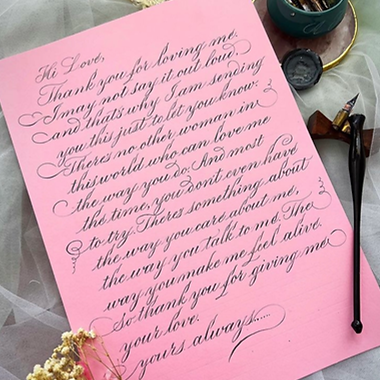 Hi Love,
Thank you for loving me.
I may not say it out loud
and thats why I am sending
you this just to let you know:
There's no other woman in
this world who can love me
the way you do. And most
the time, you don't even have
to try. There's something about
the way you care about me,
the way you talk to me. The
way you make me feel alive.
So thank you for giving me
your love.
yours always......